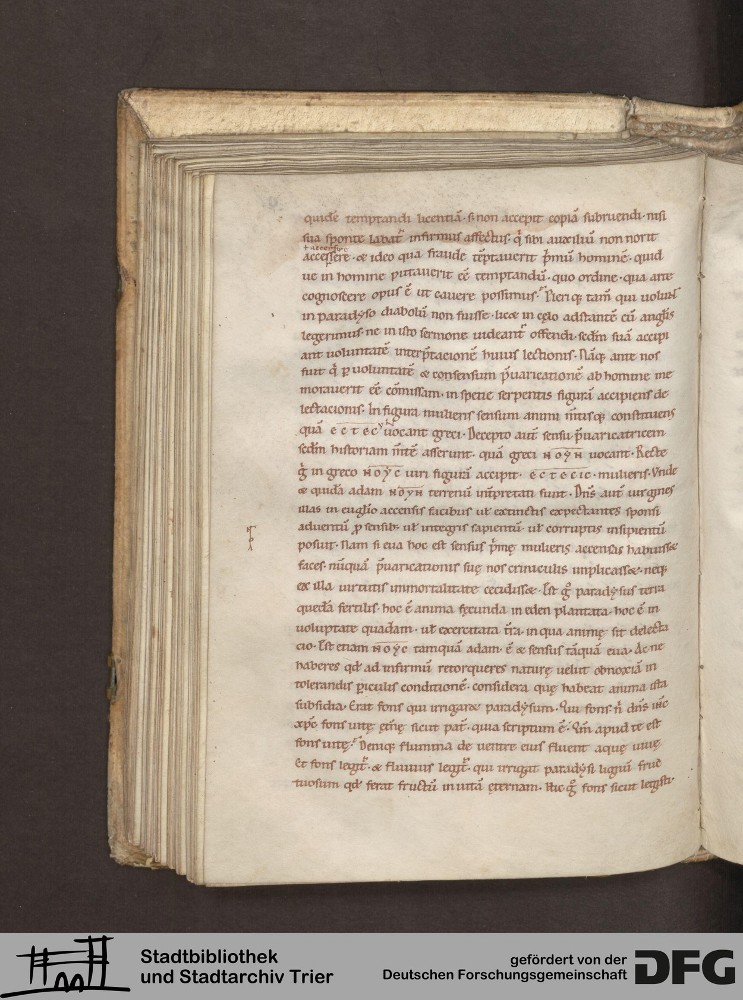 quidē temptandi licentiā · si non accepit copiā subruendi · nisi
sua sponte labat᷑ infirmus affectus · q̄ sibi auxiliū non norit
accessere · & ideo qua fraude tēptauerit p̄mū hominē · quid
ue in homine putauerit eē temptandū · quo ordine · qua arte
cognoscere opus ē ut cauere possimus · Pleriq; tam̄ qui uolunt
in paradẏso diabolū non fuisse · lic& in cęlo adstantē cū angl̄is
legerimus · ne in isto sermone uideant᷑ offendi · scd̄m suā accipi
ant uoluntatē interp̄tacionē huius lectionis · Nāq; ante nos
fuit q̄ p uoluntatē & consensum p̄uaricationē ab homine me
morauerit eē cōmissam · in specie serpentis figurā accipiens de
lectacionis · In figura mulieris sensum animi m̄tisq; constituens
quā ЄCTЄCẏ uocant greci · Decepto aut̄ sensu p̄uaricatricem
scd̄m historiam m̄tē asserunt · quā greci NOẎN uocant · Recte
g̊ in greco NOẎC uiri figurā accipit · ЄCTЄCIC · mulieris · Vnde
& quidā adam NOẎN terrenū int̄pretati sunt · Dn̄s aut̄ uirgines
illas in eugl̄io accensis facibus ul̄ extinctis expectantes sponsi
aduentū p̱ sensib; ul̄ integris sapientū · ul̄ corruptis insipientū
posuit · Nam si eua hoc est sensus p̄mę mulieris accensas habuiss&
faces · nūquā p̄uaricationis suę nos criniculis implicass& · neq;
ex illa uirtutis immortalitate cecidiss& · Est g̊ paradẏsus terra
quędā fertilis · hoc ē anima fęcunda in eden plantata · hoc ē in
uoluptate quadam · ul̄ exercitata t̄ra · in qua animę sit delecta
cio · Est etiam NOẎC tamquā adam · ē & sensus tāquā eua · Ac ne
haberes qd̄ ad infirmū retorqueres naturę uelut obnoxiā in
tolerandis p̱iculis conditionē · considera quę habeat anima ista
subsidia · Erat fons qui irrigar& paradẏsum · Qui fons n̄ dn̄s ih̄c
xp̄c fons uitę et̄nę sicut pat̄ · quia scriptum ē · Qm̄ apud te est
fons uitę · Deniq; flumina de uentre eius fluent aquę uiuę
Et fons legit᷑ · & fluuius legit᷑ · qui irrigat paradẏsi lignū fruc
tuosum qd̄ ferat fructū in uitā ęternam · Hic g̊ fons sicut legisti ·
Stadtbibliothek
und Stadtarchiv Trier
gefördert von der
Deutschen Forschungsgemeinschaft
DFG